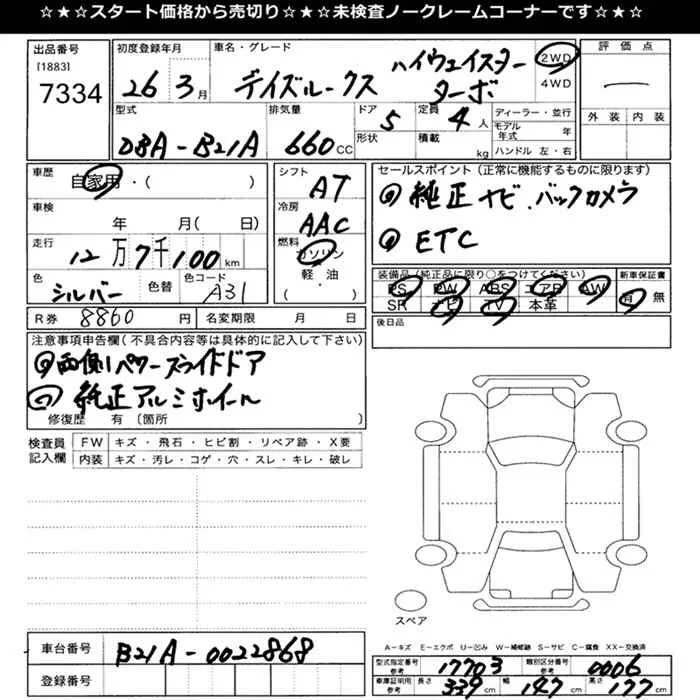 ☆★☆スタート価格から売切り☆★☆未検査ノークレームコーナーです☆★☆
出品番号
[1883]
7334
初度登録年月
26 3月
車名・グレード
デイズルークス ハイウェイスター
ターボ
2WD
4WD
評価点
外装 内装
型式
DBA-B21A
排気量
660cc
ドア 5
形状
定員 4人
積載 kg
ディーラー・並行
モデル年式 年
ハンドル 左・右
車歴
自家用・( )
車検
年 月( 日)
走行
12万7千100km
色
シルバー
色替
色コード
A31
シフト
AT
冷房
AAC
燃料
ガソリン
軽・油
( ・ )
R券 8860円
名変期限 月 日
セールスポイント(正常に機能するものに限ります)
純正ナビ、バックカメラ
ETC
装備品(純正品に限り○をつけてください)
PS PW ABS エアB AW
SR ナビ TV 本革
新車保証書
有 無
後日品
注意事項申告欄(不具合内容等は具体的に記入して下さい)
両側パワースライドドア
純正アルミホイール
修復歴 有 〔箇所 〕
検査員記入欄
FW キズ・飛石・ヒビ割・リペア跡・X要
内装 キズ・汚レ・コゲ・穴・スレ・キレ・破レ
スペア
A−キズ E−エクボ U−凹み W−補修跡 S−サビ C−腐食 XX−交換済
車台番号 B21A-0022868
登録番号
型式指定番号 参考 17703
類別区分番号 参考 0006
車庫証明用 参考
長さ 339cm
幅 147cm
高さ 177cm